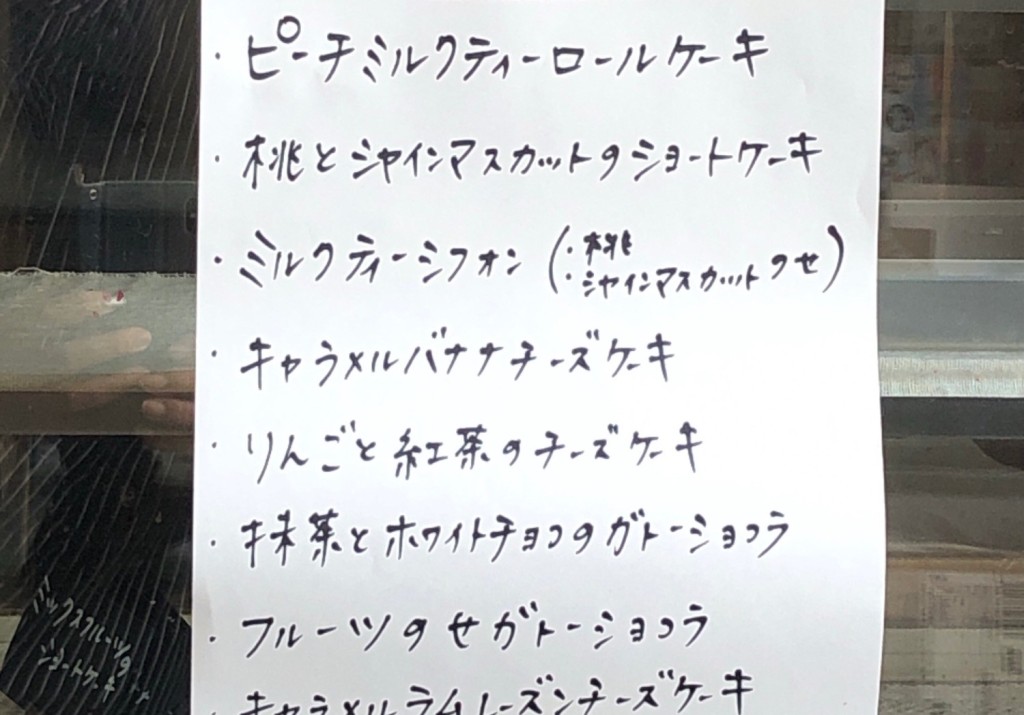 ・ピーチミルクティーロールケーキ
・桃とシャインマスカットのショートケーキ
・ミルクティーシフォン(・桃
・シャインマスカットのせ)
・キャラメルバナナチーズケーキ
・りんごと紅茶のチーズケーキ
・抹茶とホワイトチョコのガトーショコラ
・フルーツのせガトーショコラ
キャラメルラムレーズンチーズケーキ
ミックスフルーツの
ショートケーキ